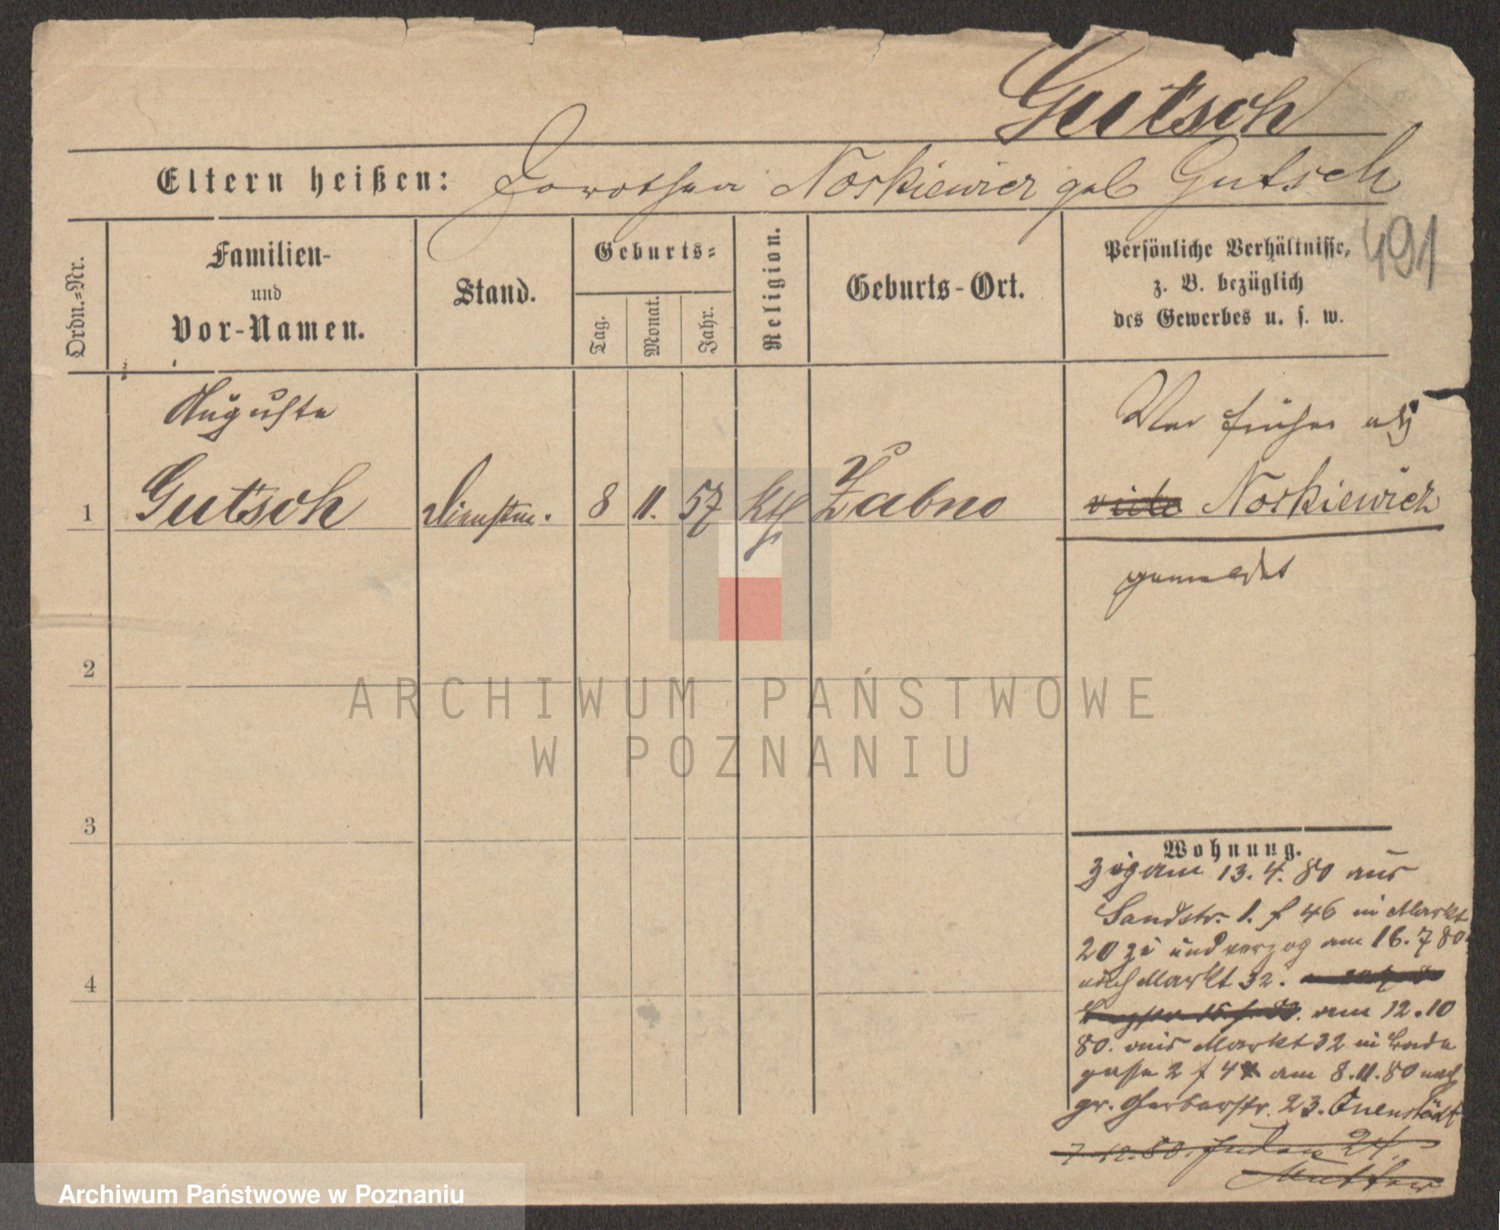 Gutsch
Eltern heißen: Dorothea Noskiewicz geb Gutsch
491
Ordn.=Nr.
Familien-
und
Vor-Namen.
Stand.
Geburts=
Tag.
Monat.
Jahr.
Religion.
Geburts-Ort.
Persönliche Verhältnisse,
z. B. bezüglich
des Gewerbes u. s. w.
Auguste
War früher als
1 Gutsch Dienstm. 8 11. 57 kth Żabno vide Noskiewicz
gemeldet
2
3
4
Wohnung.
zog am 13. 4. 80 aus
Sandstr. 1. f 46 in Markt
20 zu und verzog am 16. 7 80
nach Markt 32.
am 12. 10
80. aus Markt 32 in
gasse 2 f 4 am 8. 11. 80 nach
gr. Gerberstr. 23. Quenstädt
7. 12. 80. Juden 24.
ARCHIWUM PAŃSTWOWE
W POZNANIU
Archiwum Państwowe w Poznaniu